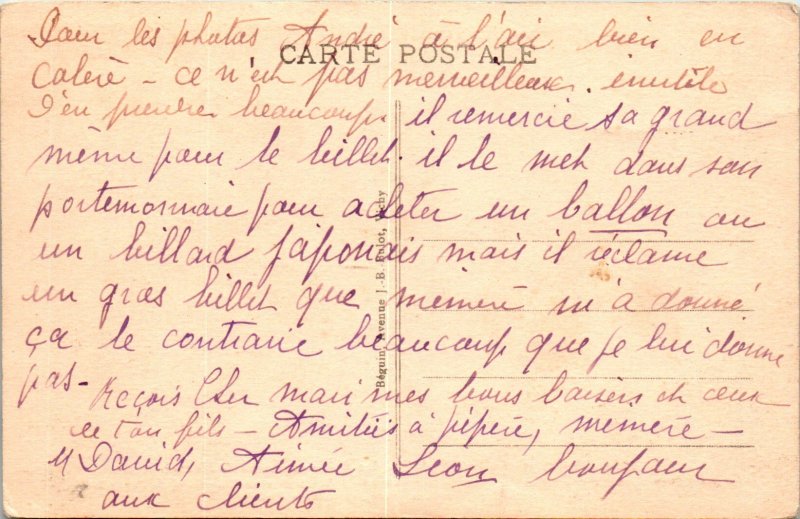 Pour les photos André à l'air bien en
CARTE POSTALE
colère - ce n'est pas merveilleux. inutile
d'en prendre beaucoup. il remercie sa grand
même pour le billet. il le met dans son
portemonnaie pour acheter un ballon ou
un billard japonais mais il réclame
un gros billet que mémère m'a donné
ça le contrarie beaucoup que je lui donne
pas -
Reçois Cher mari mes bons baisers et ceux
de ton fils - Amitiés à pépère, mémère -
M David, Aimée Léon bonjour
aux clients
Béguin, Avenue J.-B. Vichy